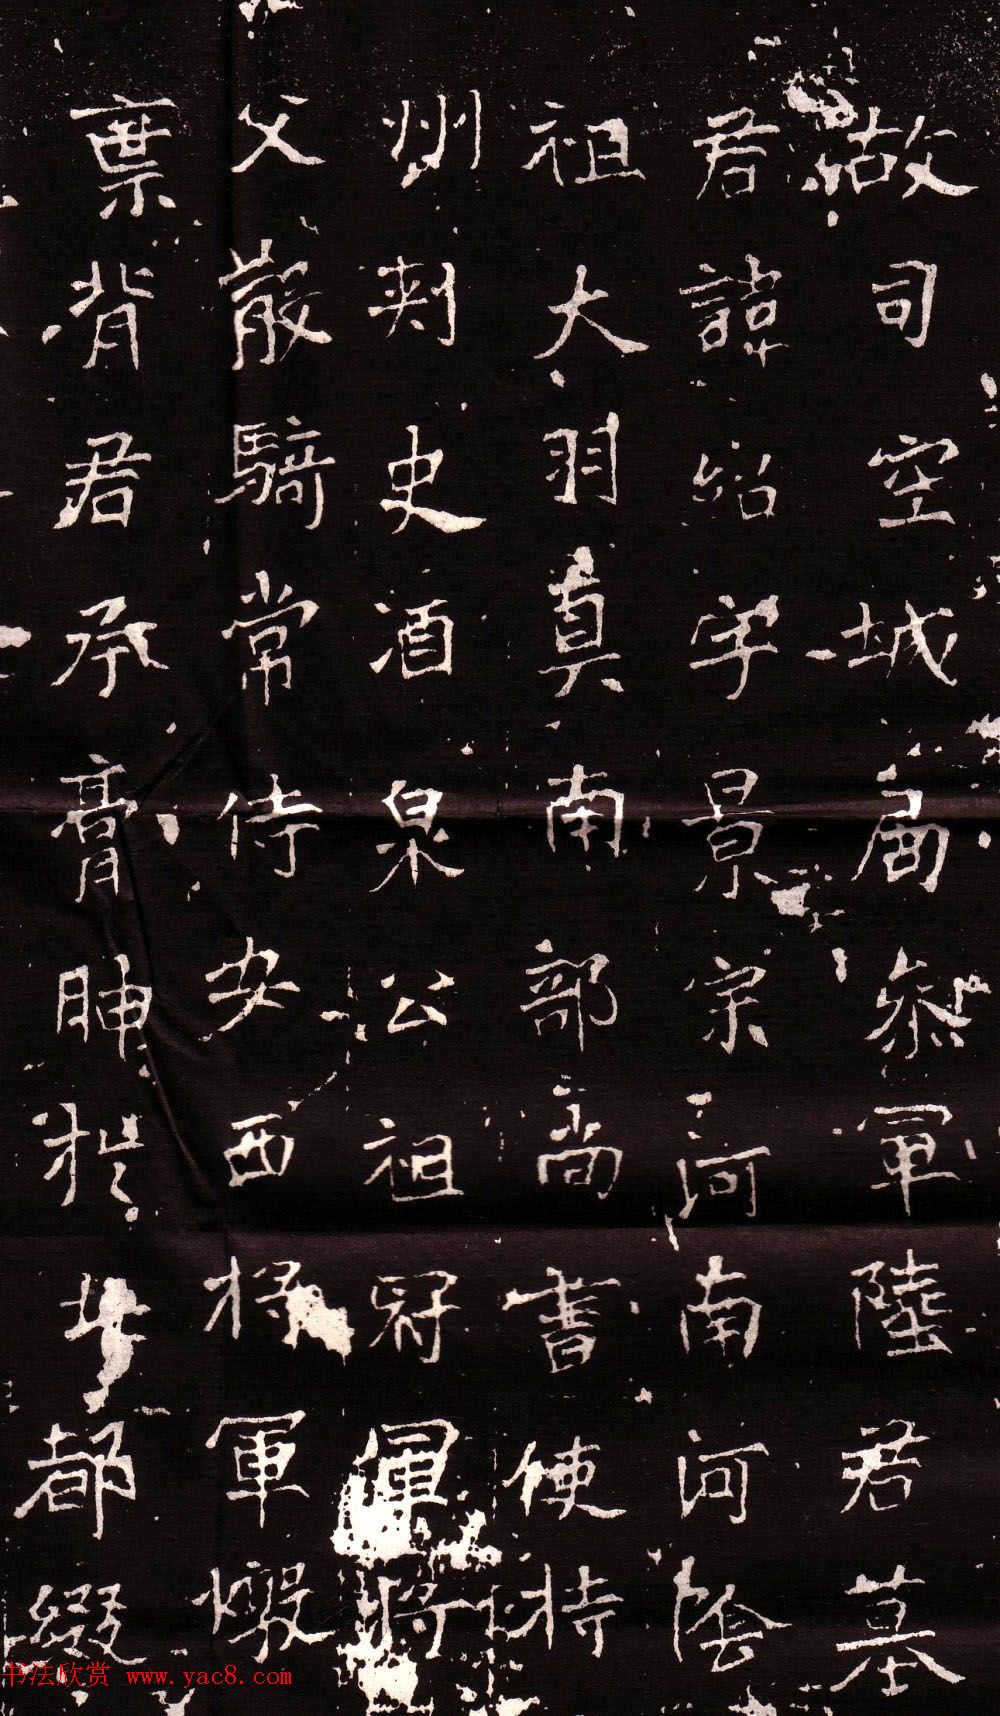 故司空城局參軍陸君墓
君諱紹字景宗河南河陰
祖大羽真南部尚書使持
州刺史酒泉公祖冠軍將
父散騎常侍安西將軍燉
稟背君承膏胂於
都綴
书法欣赏 www.yac8.com